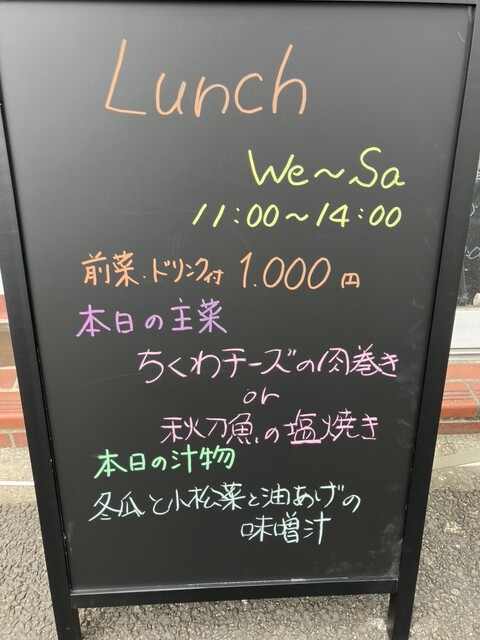 Lunch
We~Sa
11:00~14:00
前菜・ドリンク付 1.000円
本日の主菜
ちくわチーズの肉巻き
or
秋刀魚の塩焼き
本日の汁物
冬瓜と小松菜と油あげの
味噌汁